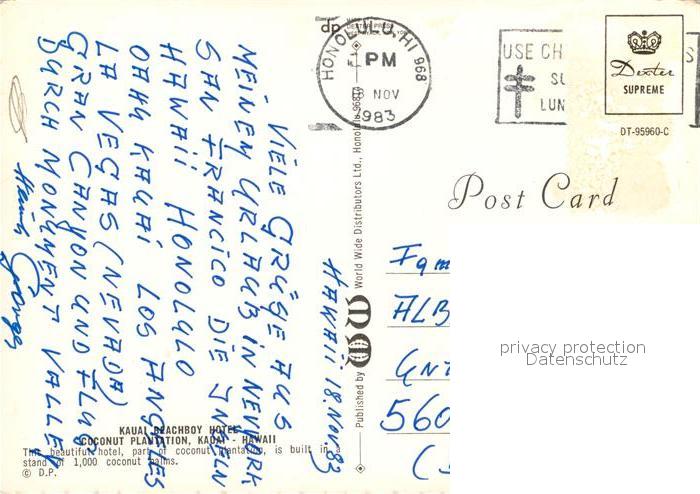 HAWAII 18.NOV.83
VIELE GRÜSE AUS
MEINEM URLAUB IN NEWYORK
SAN FRANCICO DIE INSELN
HAWAII HONOLULO
OAHU KAUAI LOS ANGELES
LA VEGAS (NEVADA)
GRAN CANYON UND FLUG
DURCH MONUMENT VALLEY
KAUAI BEACHBOY HOTEL
COCONUT PLANTATION, KAUAI - HAWAII
This beautiful hotel, part of coconut plantation, is built in a
stand of 1,000 coconut palms.
© D.P.
dp
Published by WWD World Wide Distributors Ltd., Honolulu
HONOLULU, HI 968
PM
NOV
1983
USE CH
S
SU
LUN
Dexter
SUPREME
DT-95960-C
Post Card
Fam
ALB
560
privacy protection
Datenschutz